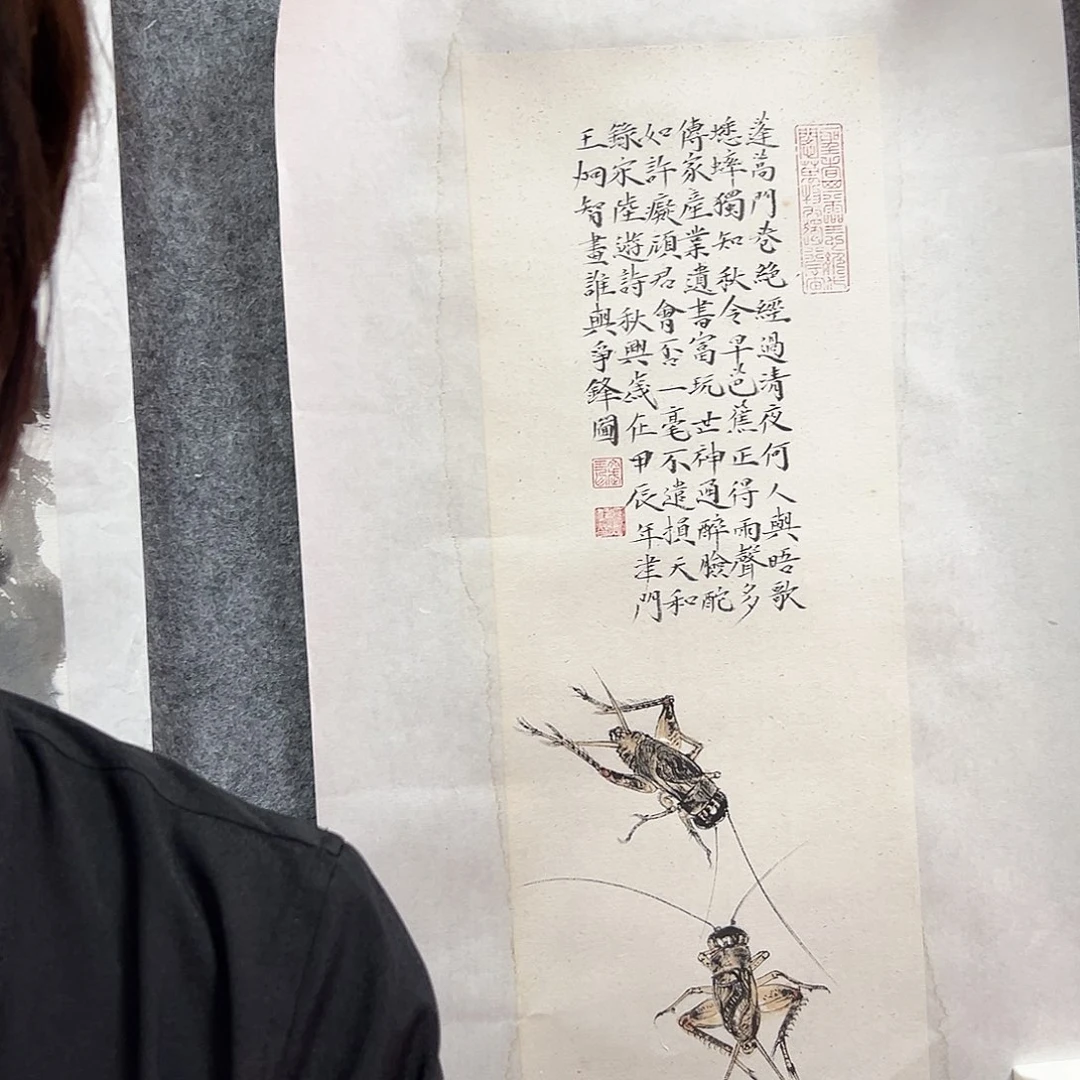 蓬蒿門巷絕經過清夜何人與晤歌
蟋蟀獨知秋令早芭蕉正得雨聲多
傳家産業遺書富玩世神通醉臉酡
如許癡頑君會否一毫不遣損天和
錄宋陸遊詩秋興歲在甲辰年津門
王炯智畫誰與爭鋒圖